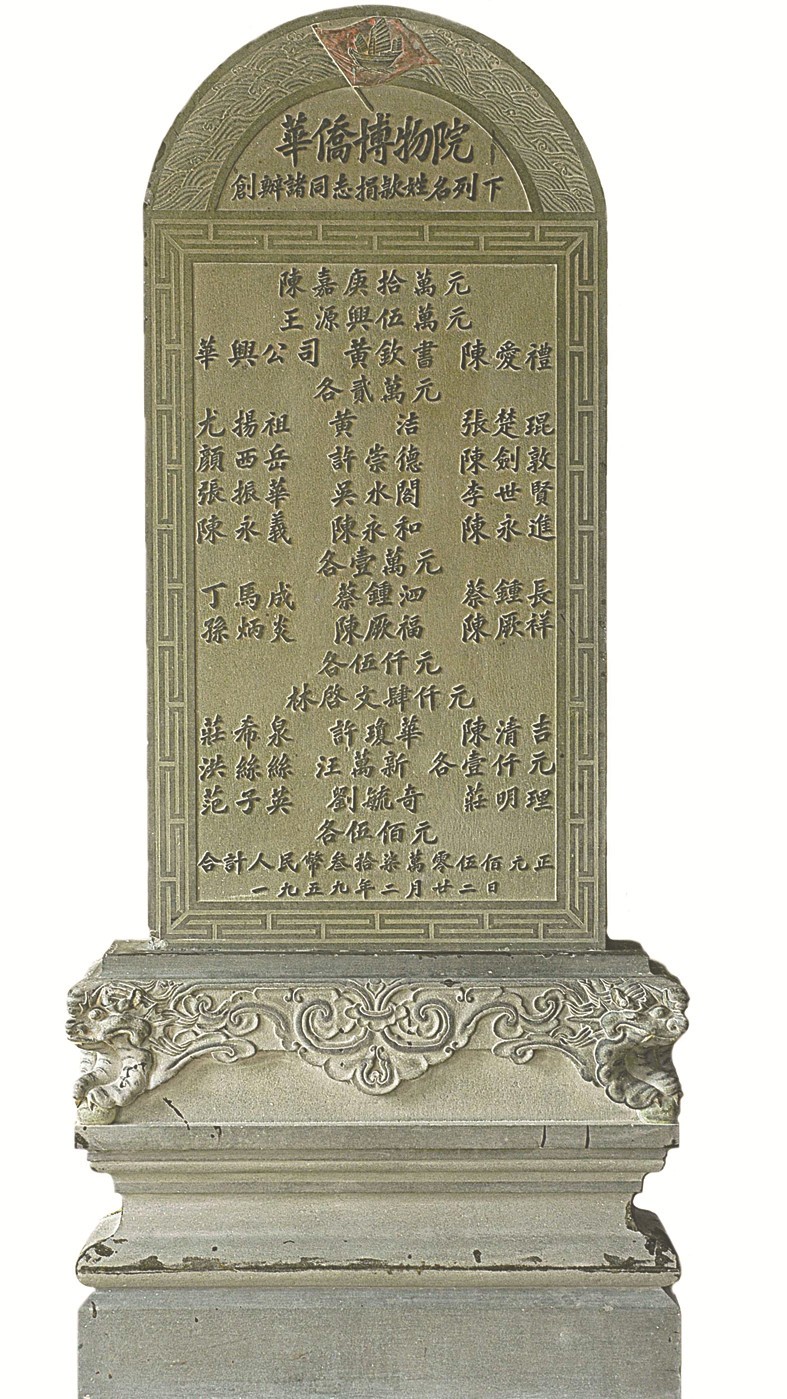 華僑博物院
創辦諸同志捐款姓名列下
陳嘉庚拾萬元
王源興伍萬元
華興公司 黃欽書 陳愛禮
各貳萬元
尤揚祖 黃洁 張楚琨
顏西岳 許崇德 陳劍敦
張振華 吳水閣 李世賢
陳永義 陳永和 陳永進
各壹萬元
丁馬成 蔡鍾泗 蔡鍾長
孫炳炎 陳厥福 陳厥祥
各伍仟元
林啓文肆仟元
莊希泉 許瓊華 陳清吉
洪絲絲 汪萬新 各壹仟元
范子英 劉毓奇 莊明理
各伍佰元
合計人民幣叁拾柒萬零伍佰元正
一九五九年二月廿二日